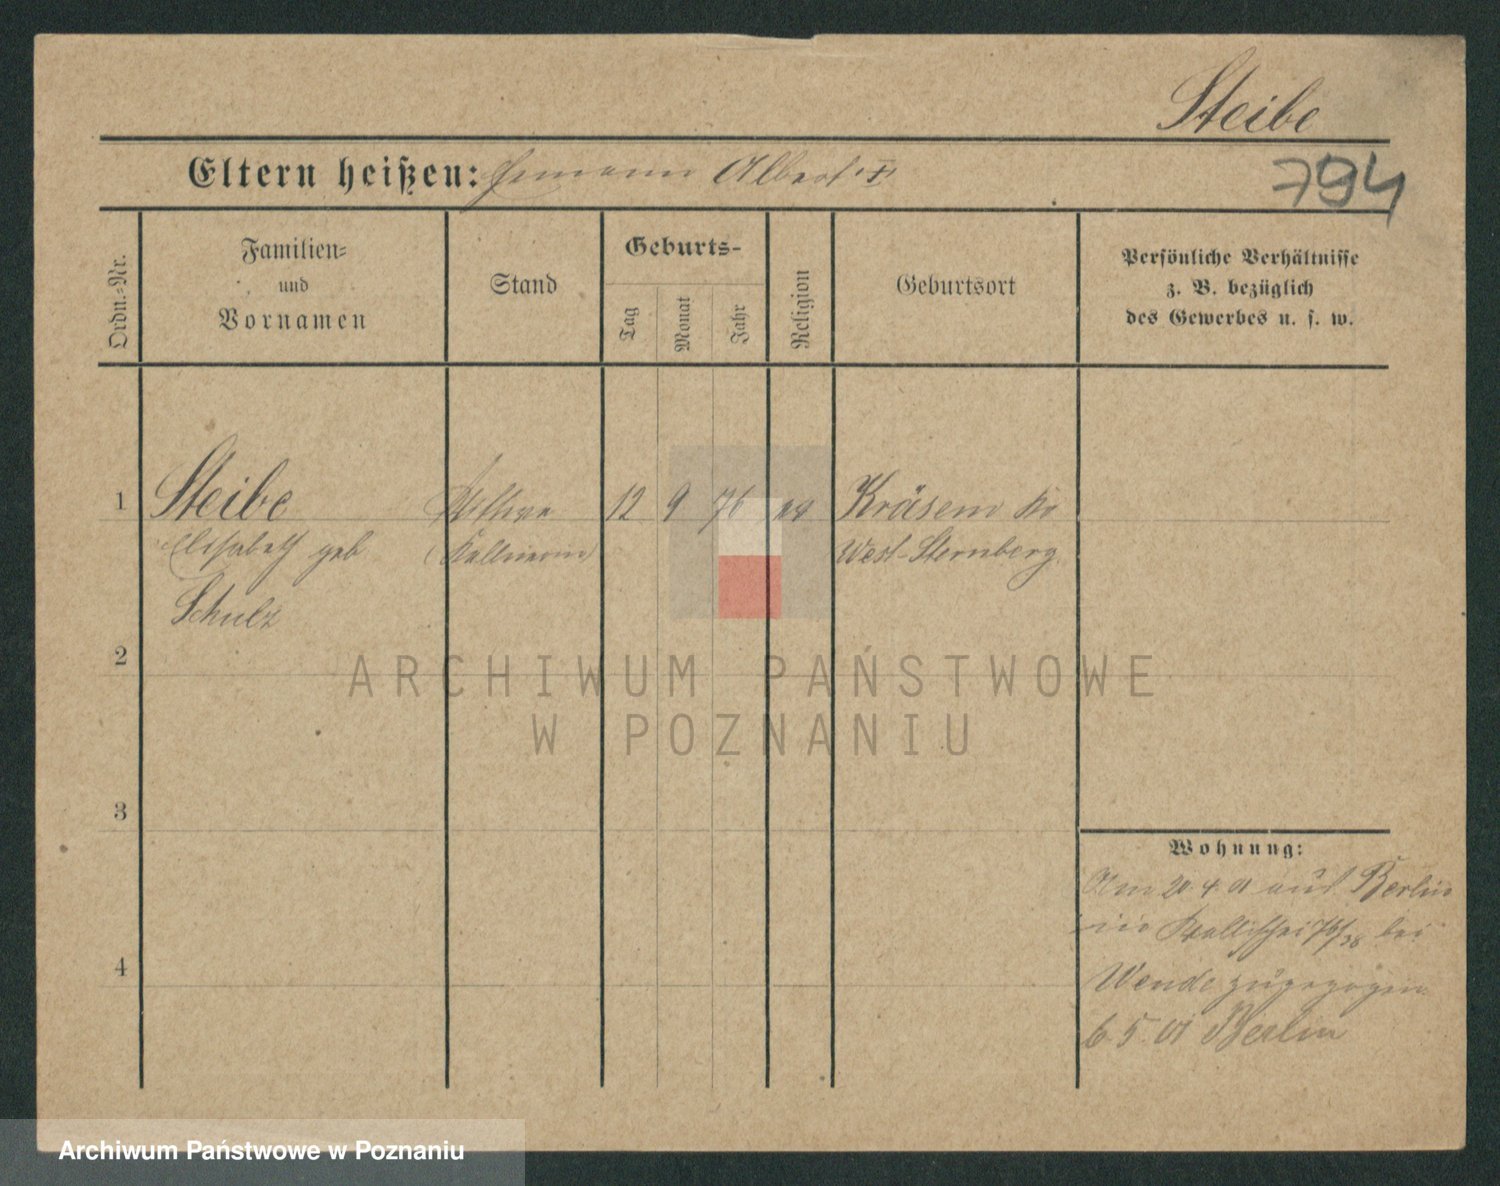 Steibe
Eltern heißen: Hermann Albert †
794
Ordn.-Nr.
Familien-
und
Vornamen
Stand
Geburts-
Tag
Monat
Jahr
Religion
Geburtsort
Persönliche Verhältnisse
z. B. bezüglich
des Gewerbes u. s. w.
1 Steibe Wittwe 12 9 76 Kräsem Kr
Elisabeth geb (Kellnerin) West-Sternberg
Schulz
2
3
4
Wohnung:
Am 20.4.01 aus Berlin
in Wallischei 76/38 bei
Wende zugezogen
6.5.01 Berlin
ARCHIWUM PAŃSTWOWE
W POZNANIU
Archiwum Państwowe w Poznaniu